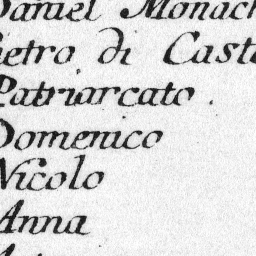 Daniel Monach
Pietro di Cast
Patriarcato.
Domenico
Nicolo
Anna